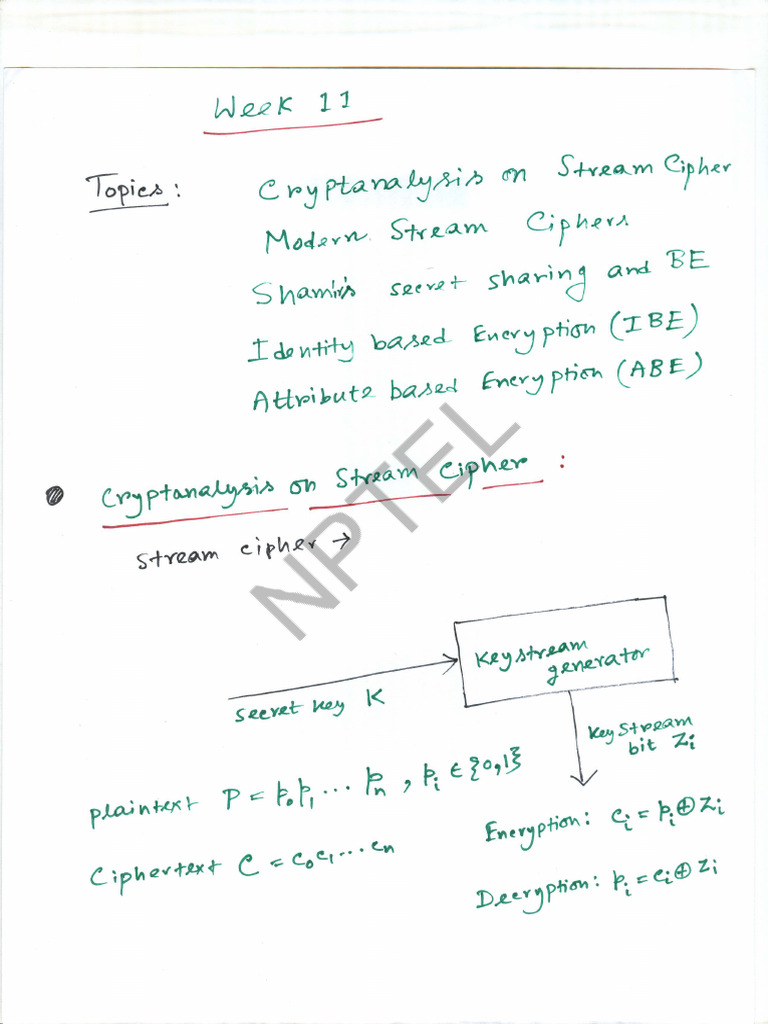 Week 11
Topics: Cryptanalysis on Stream Cipher
Modern Stream Ciphers
Shamir's secret sharing and BE
Identity based Encryption (IBE)
Attribute based Encryption (ABE)
Cryptanalysis on Stream Cipher :
Stream cipher →
Keystream
generator
secret key K
Keystream
bit Zi
plaintext P = p₀p₁ ... pₙ , pᵢ ∈ {0,1}
Encryption: cᵢ = pᵢ ⊕ Zᵢ
Ciphertext C = c₀c₁ ... cₙ
Decryption: pᵢ = cᵢ ⊕ Zᵢ
NPTEL